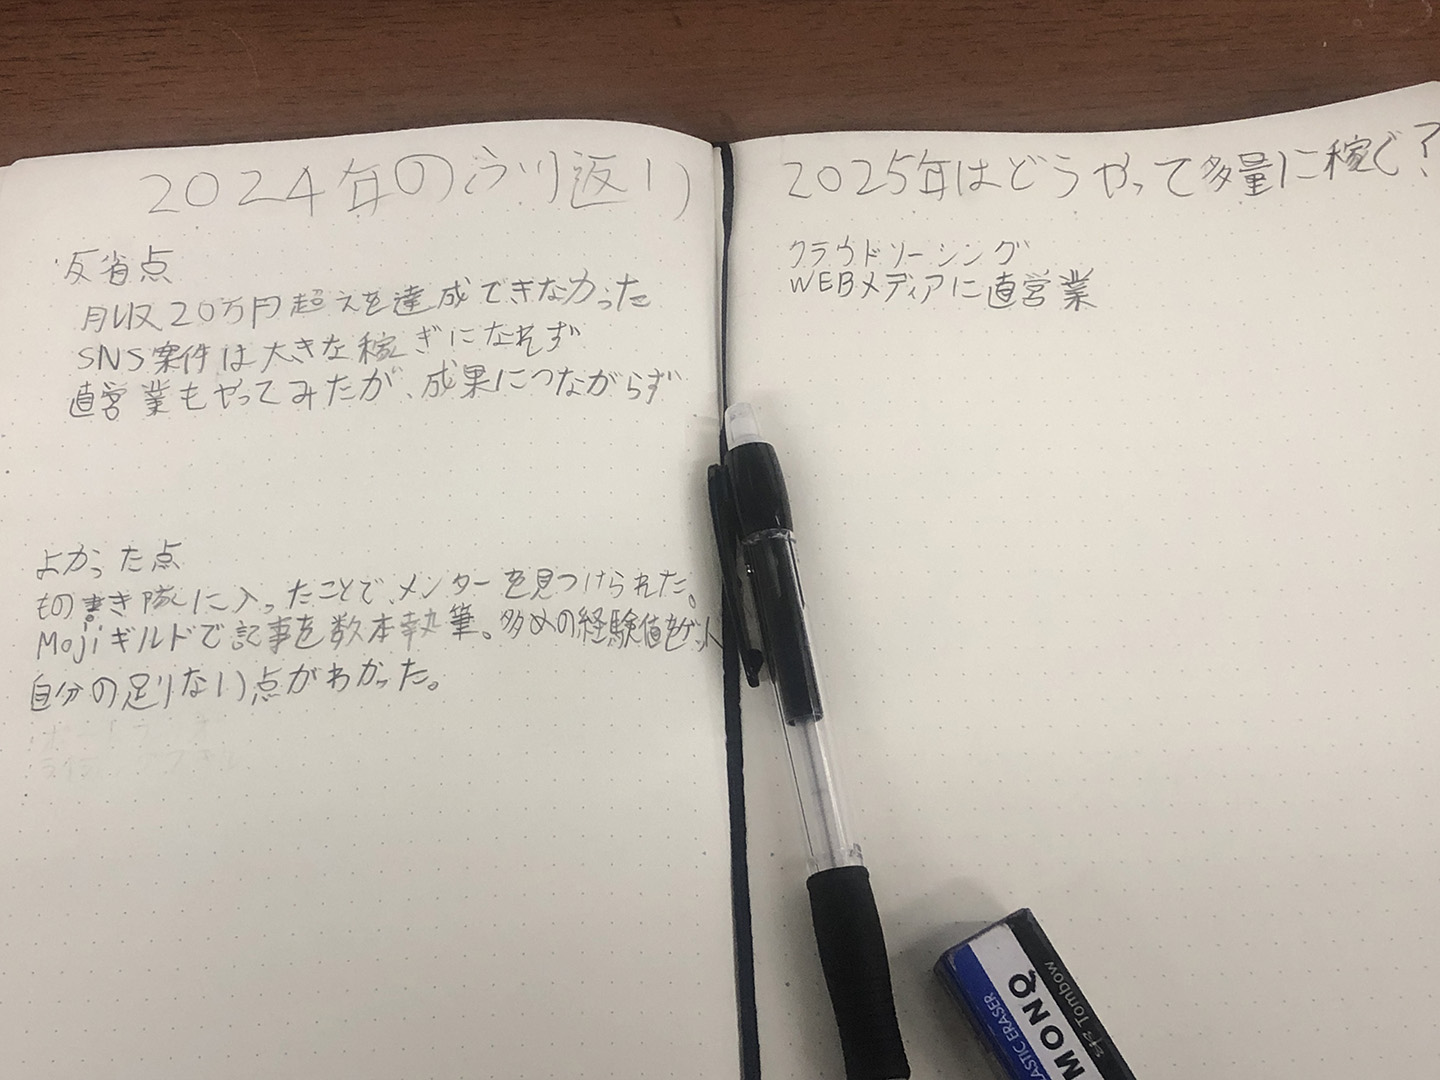 2024年のふり返り
反省点
月収20万円超えを達成できなかった
SNS案件は大きな稼ぎになれず
直営業もやってみたが、成果につながらず
よかった点
もの書き隊に入ったことで、メンターを見つけられた。
Mojiギルドで記事を数本執筆。多めの経験値をゲット
自分の足りない点がわかった。
2025年はどうやって多量に稼ぐ?
クラウドソーシング
WEBメディアに直営業
Tombow
MONO
PLASTIC ERASER